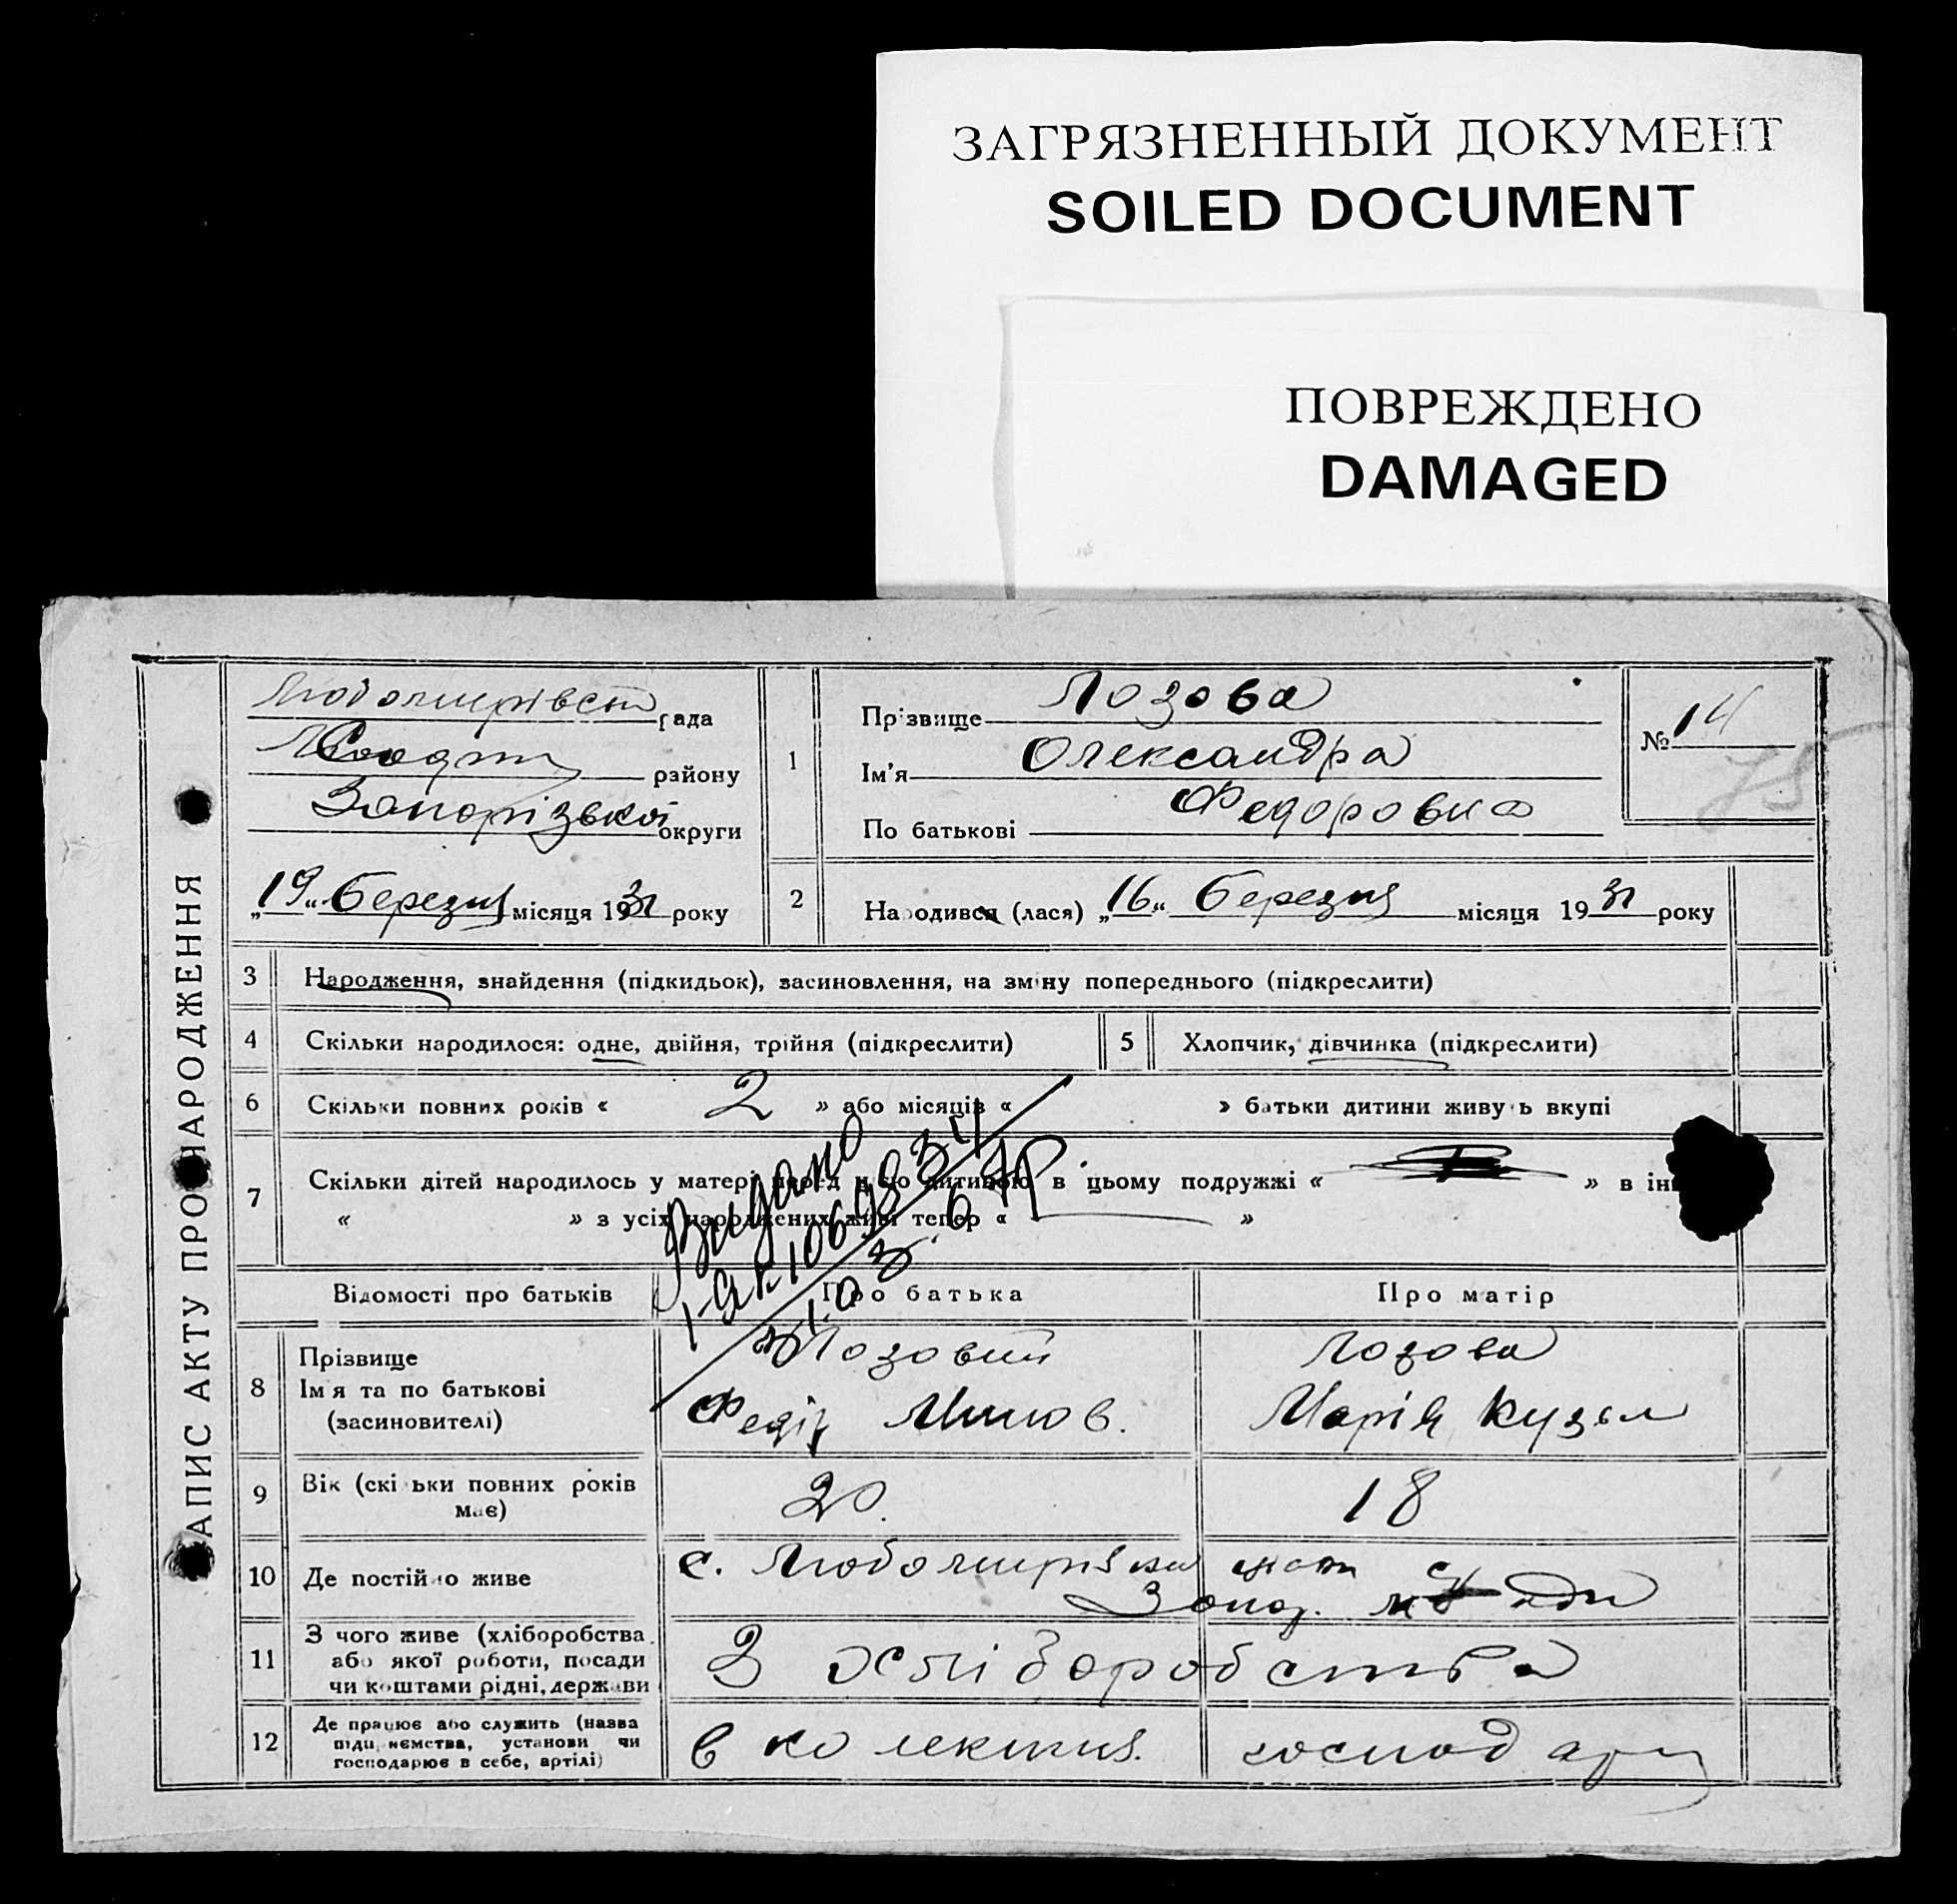 ЗАГРЯЗНЕННЫЙ ДОКУМЕНТ
SOILED DOCUMENT
ПОВРЕЖДЕНО
DAMAGED
ЗАПИС АКТУ ПРО НАРОДЖЕННЯ
рада
району
Запорізької округи
„19“ березня місяця 1931 року
1
Прізвище Лозова
Ім'я Олександра
По батькові Федоровна
№ 14
75
2
Народився (лася) „16“ березня місяця 1931 року
3 Народження, знайдення (підкидьок), засиновлення, на зміну попереднього (підкреслити)
4 Скільки народилося: одне, двійня, трійня (підкреслити)
5 Хлопчик, дівчинка (підкреслити)
6 Скільки повних років « 2 » або місяців « » батьки дитини живуть вкупі
7 Скільки дітей народилось у матері перед цією дитиною в цьому подружжі « » в ін
« » з усіх народжених живі тепер « »
Видано
Відомості про батьків Про батька Про матір
8 Прізвище
Ім'я та по батькові
(засиновителі)
Лозовий
Федір
Лозова
Марія Кузьм
9 Вік (скільки повних років
має)
20. 18
10 Де постійно живе
с.
Запор.
11 З чого живе (хліборобства
або якої роботи, посади
чи коштами рідні, держави
З хліборобства
12 Де працює або служить (назва
підприємства, установи чи
господарює в себе, артілі)
в колектив. господар